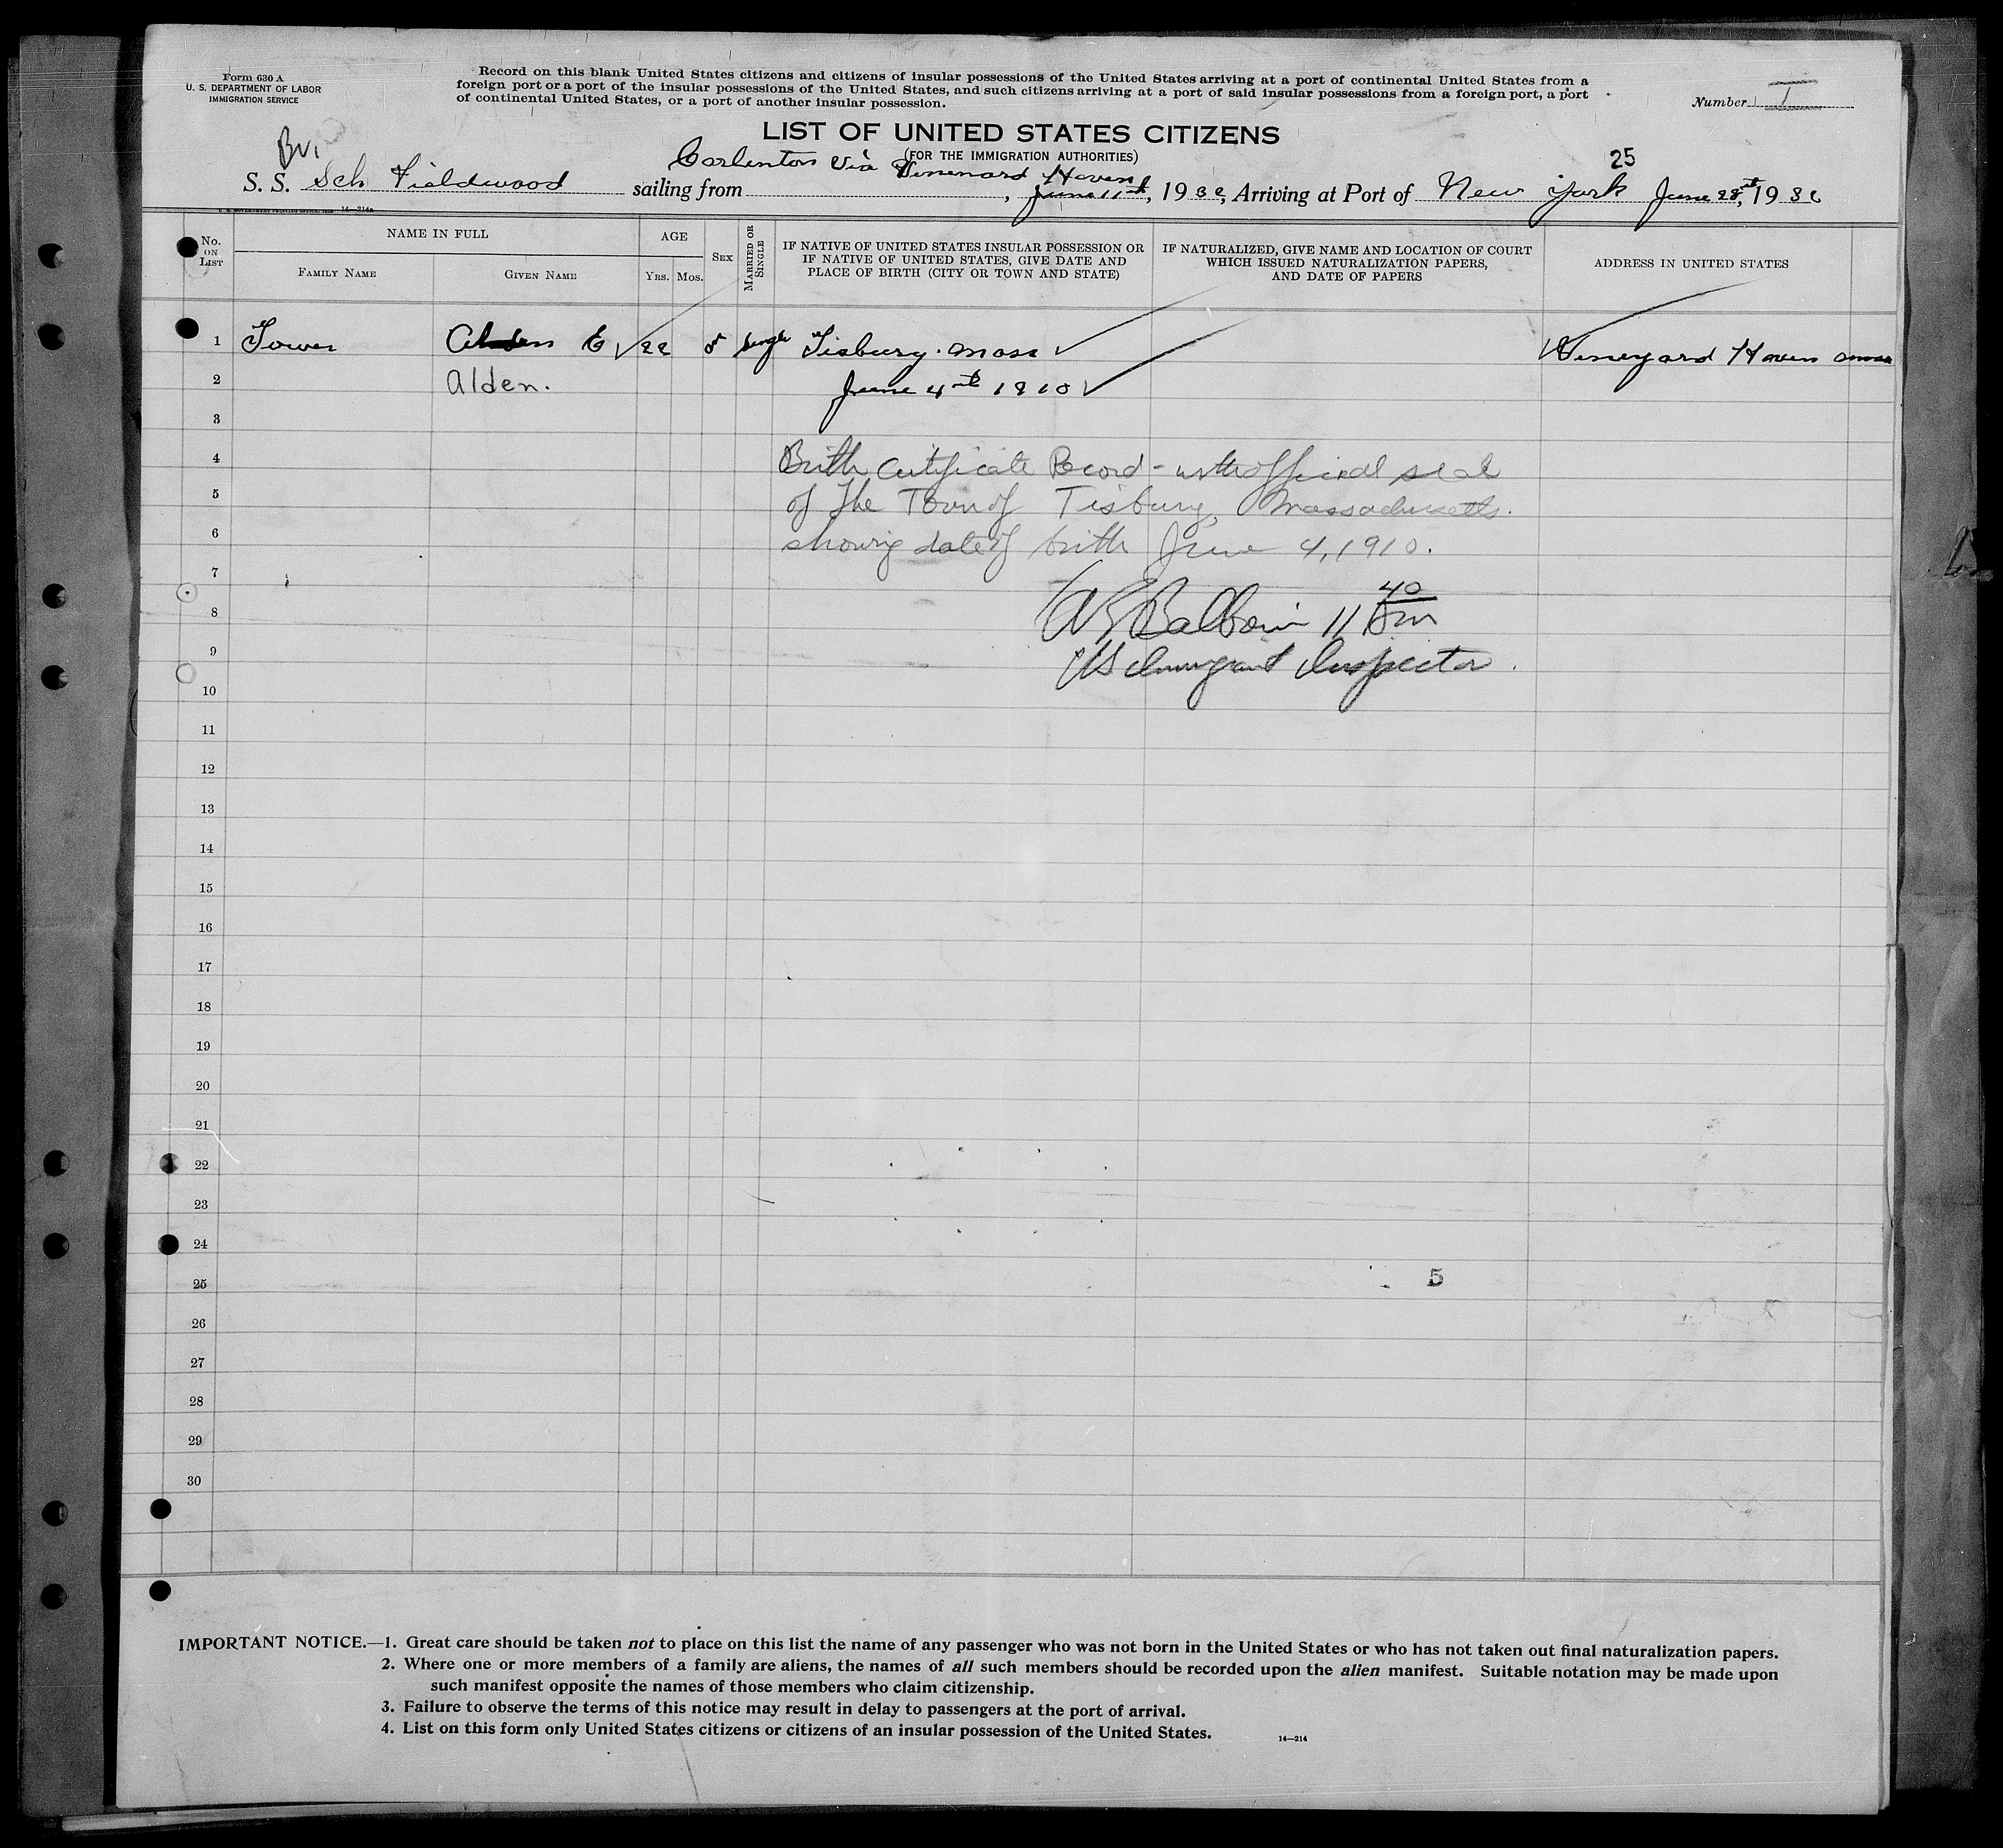 Form 630 A
U. S. DEPARTMENT OF LABOR
IMMIGRATION SERVICE
Record on this blank United States citizens and citizens of insular possessions of the United States arriving at a port of continental United States from a
foreign port or a port of the insular possessions of the United States, and such citizens arriving at a port of said insular possessions from a foreign port, a port
of continental United States, or a port of another insular possession.
Number I
LIST OF UNITED STATES CITIZENS
(FOR THE IMMIGRATION AUTHORITIES)
Br.
via Haven
25
S. S. Sch Fieldwood sailing from , June 11th, 19 , Arriving at Port of New York June 28, 19
14—214a
No. ON LIST
NAME IN FULL
FAMILY NAME
GIVEN NAME
AGE
YRS. MOS.
SEX
MARRIED OR SINGLE
IF NATIVE OF UNITED STATES INSULAR POSSESSION OR
IF NATIVE OF UNITED STATES, GIVE DATE AND
PLACE OF BIRTH (CITY OR TOWN AND STATE)
IF NATURALIZED, GIVE NAME AND LOCATION OF COURT
WHICH ISSUED NATURALIZATION PAPERS,
AND DATE OF PAPERS
ADDRESS IN UNITED STATES
1 Tower E 22 Single Tisbury. Mass Vineyard Haven Mass
2 Alden. June 4th 1910
3
4 Birth Certificate Record - with official seal
5 of the Town of Tisbury, Massachusetts.
6 showing date of birth June 4, 1910.
7
8 Baldwin 11 40
9 US Immigrant Inspector.
10
11
12
13
14
15
16
17
18
19
20
21
22
23
24
25
5
26
27
28
29
30
IMPORTANT NOTICE.—1. Great care should be taken not to place on this list the name of any passenger who was not born in the United States or who has not taken out final naturalization papers.
2. Where one or more members of a family are aliens, the names of all such members should be recorded upon the alien manifest. Suitable notation may be made upon
such manifest opposite the names of those members who claim citizenship.
3. Failure to observe the terms of this notice may result in delay to passengers at the port of arrival.
4. List on this form only United States citizens or citizens of an insular possession of the United States.
14—214